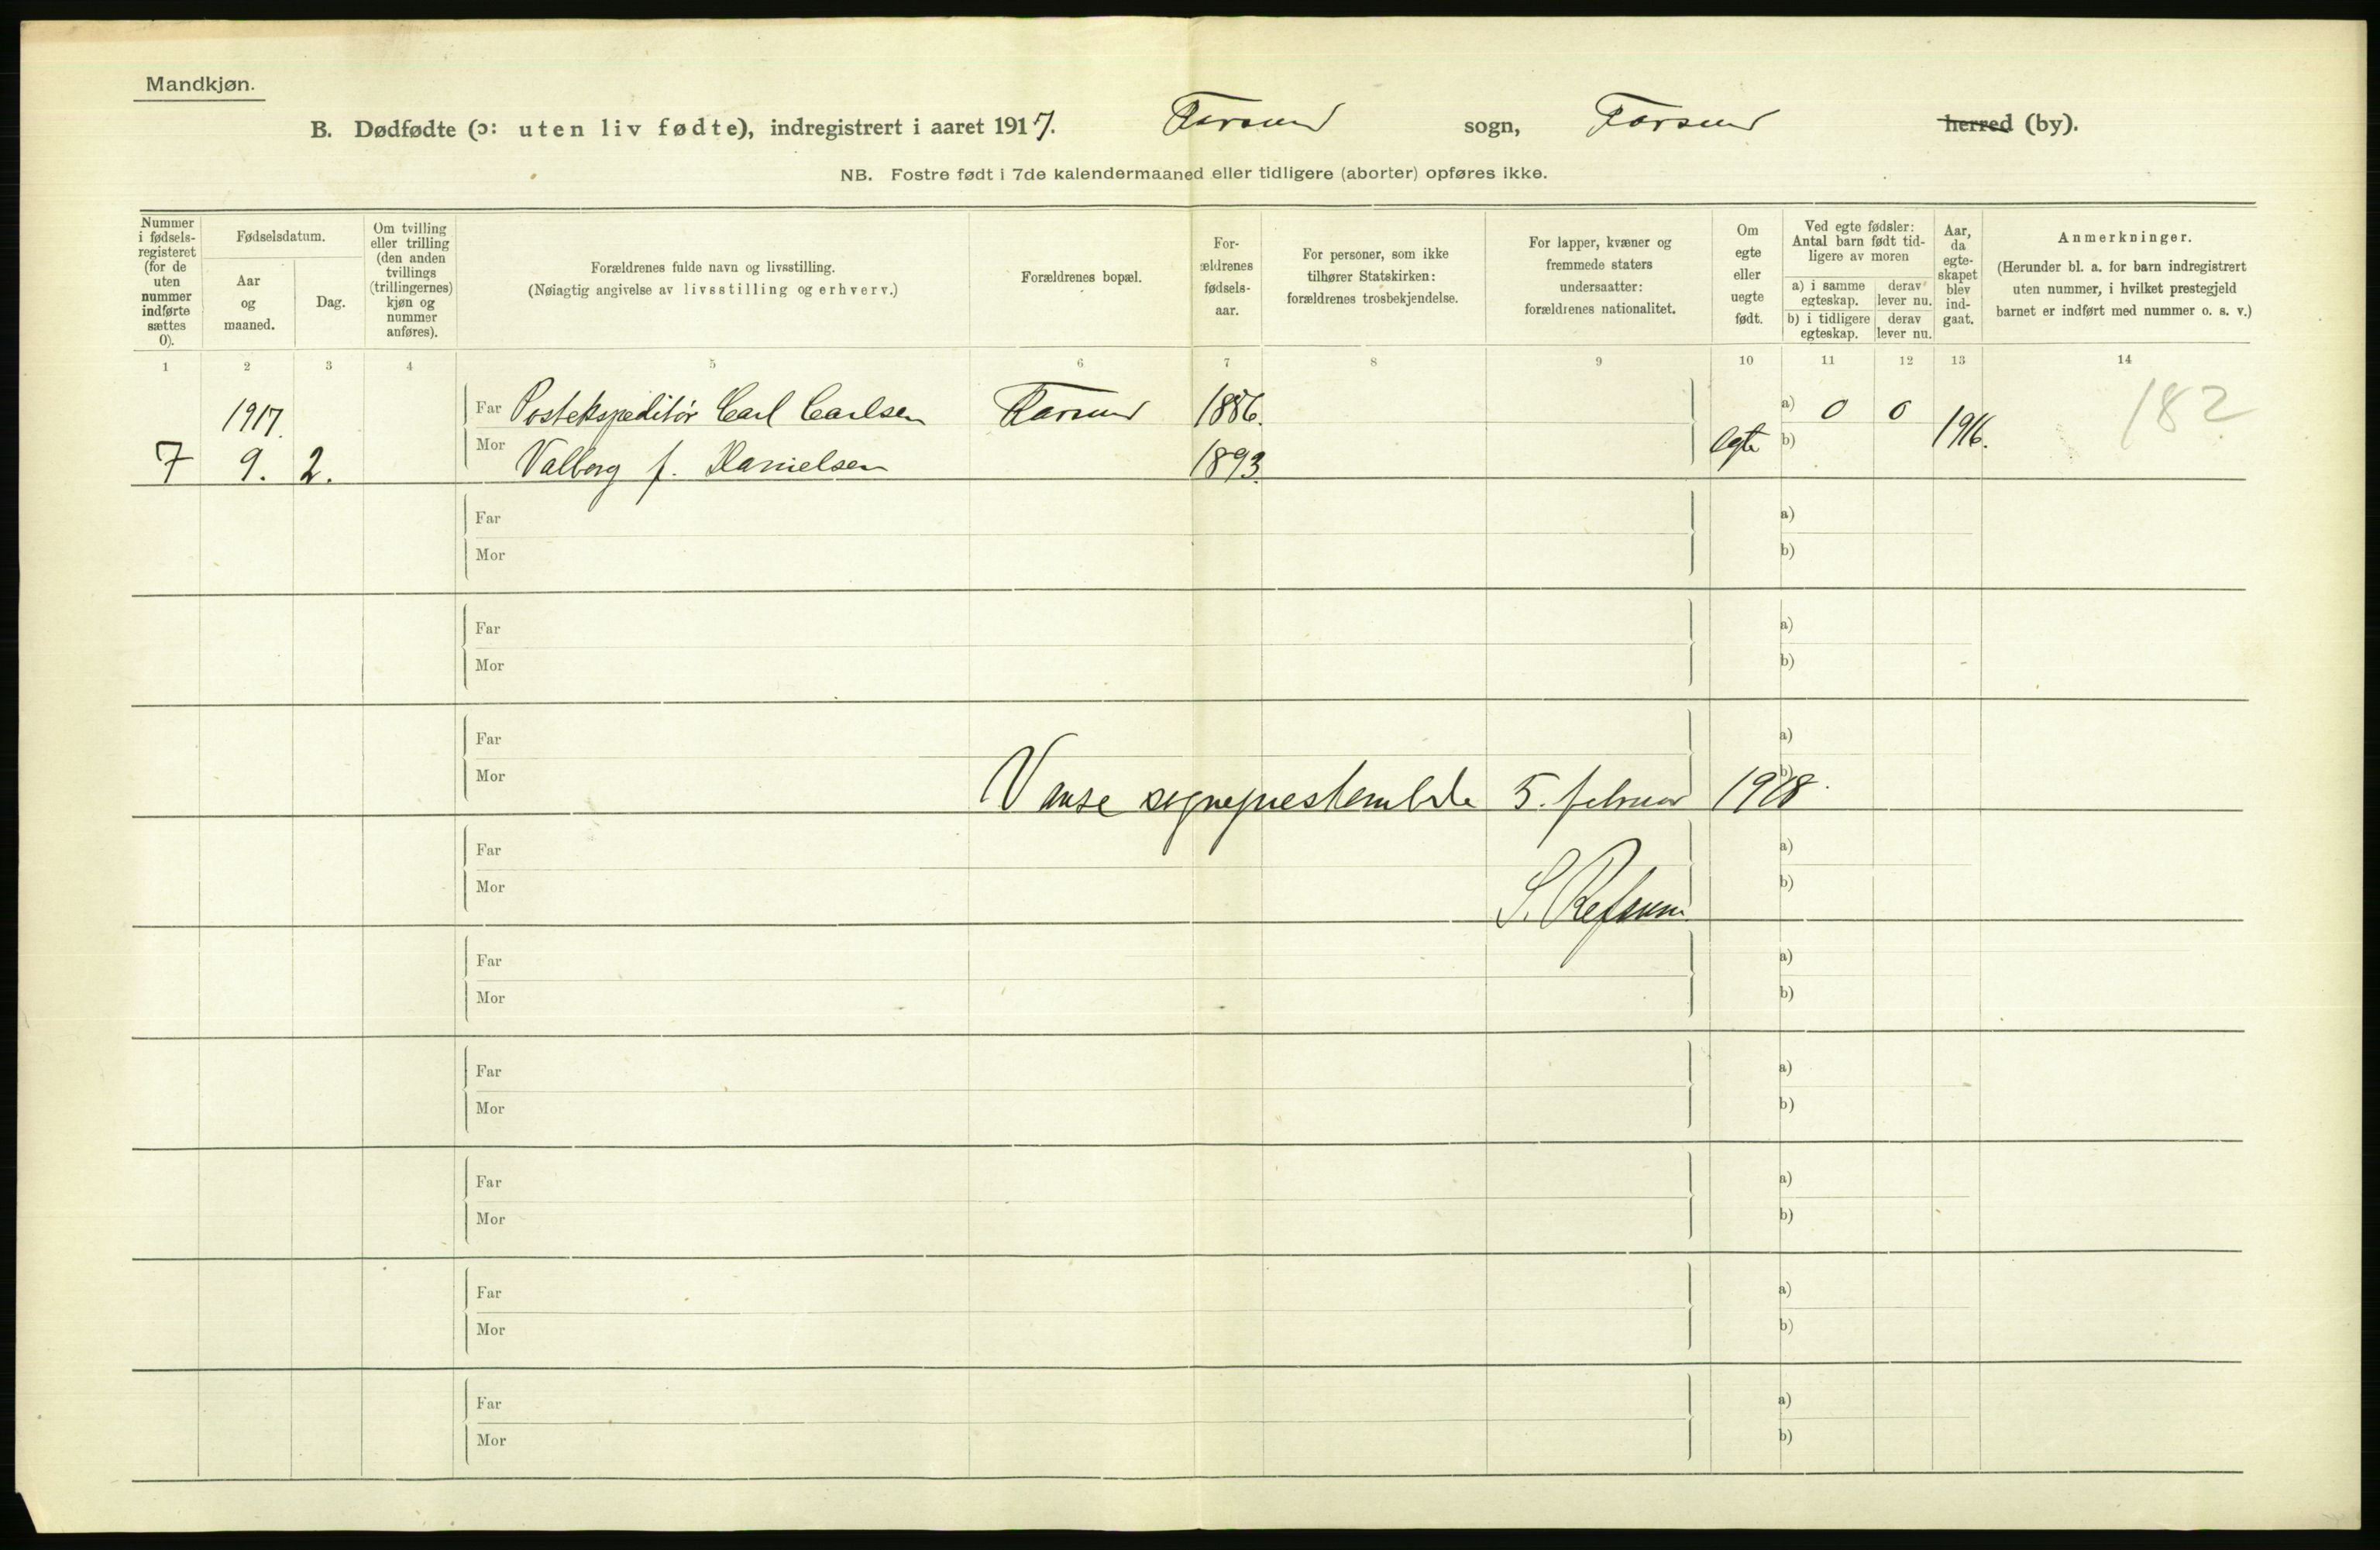 Mandkjøn.
B. Dødfødte (ɔ: uten liv fødte), indregistrert i aaret 1917. Farsund sogn, Farsund herred (by).
NB. Fostre født i 7de kalendermaaned eller tidligere (aborter) opføres ikke.
Nummer i fødsels-registeret (for de uten nummer indførte sættes 0).
Fødselsdatum.
Aar og maaned.
Dag.
Om tvilling eller trilling (den anden tvillings (trillingernes) kjøn og nummer anføres).
Forældrenes fulde navn og livsstilling.
(Nøiagtig angivelse av livsstilling og erhverv.)
Forældrenes bopæl.
For-ældrenes fødsels-aar.
For personer, som ikke tilhører Statskirken: forældrenes trosbekjendelse.
For lapper, kvæner og fremmede staters undersaatter: forældrenes nationalitet.
Om egte eller uegte født.
Ved egte fødsler: Antal barn født tid-ligere av moren
a) i samme egteskap.
derav lever nu.
b) i tidligere egteskap.
derav lever nu.
Aar, da egte-skapet blev ind-gaat.
Anmerkninger.
(Herunder bl. a. for barn indregistrert uten nummer, i hvilket prestegjeld barnet er indført med nummer o. s. v.)
1 2 3 4 5 6 7 8 9 10 11 12 13 14
1917. Far Postekspeditør Carl Carlsen Farsund 1886. a) 0 0 182
7 9. 2. Mor Valborg f. Danielsen 1893. Egte b) 1916.
Far a)
Mor b)
Far a)
Mor b)
Far a)
Mor Vanse sogneprestembede 5. februar 1918. b)
Far a)
Mor S. Refsum b)
Far a)
Mor b)
Far a)
Mor b)
Far a)
Mor b)
Far a)
Mor b)
Far a)
Mor b)